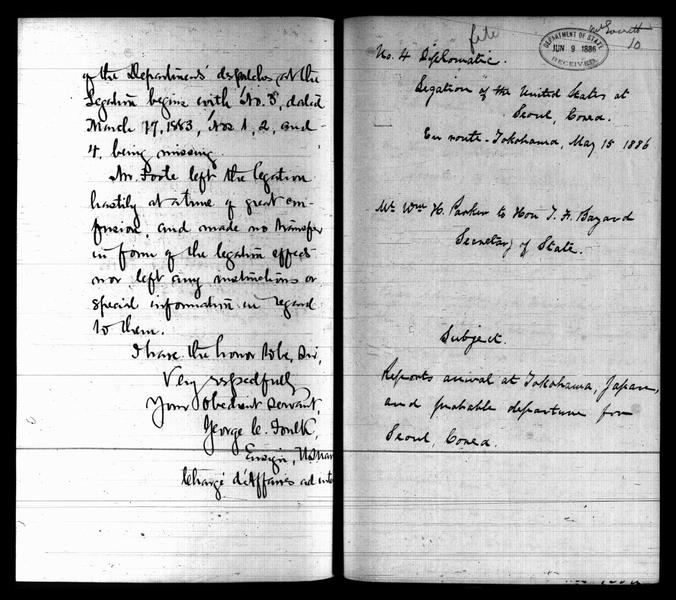 of the Department's despatches at the
Legation begins with No. 3, dated
March 17, 1883, Nos 1, 2, and
4, being missing.
Mr. Foote left the legation
hastily at a time of great con-
fusion, and made no transfer
in form of the legation effects
nor left any instructions or
special information in regard
to them.
I have the honor to be, Sir,
Very respectfully
Your obedient servant,
George C. Foulk,
Ensign, U.S. Nav
Chargé d'Affaires ad inte
file
10
DEPARTMENT OF STATE
JUN 9 1886
RECEIVED
No. 4 Diplomatic.
Legation of the United States at
Seoul, Corea.
En route - Yokohama, May 15 1886
Mr. Wm H. Parker to Hon T. F. Bayard
Secretary of State.
Subject.
Reports arrival at Yokohama, Japan,
and probable departure for
Seoul, Corea.